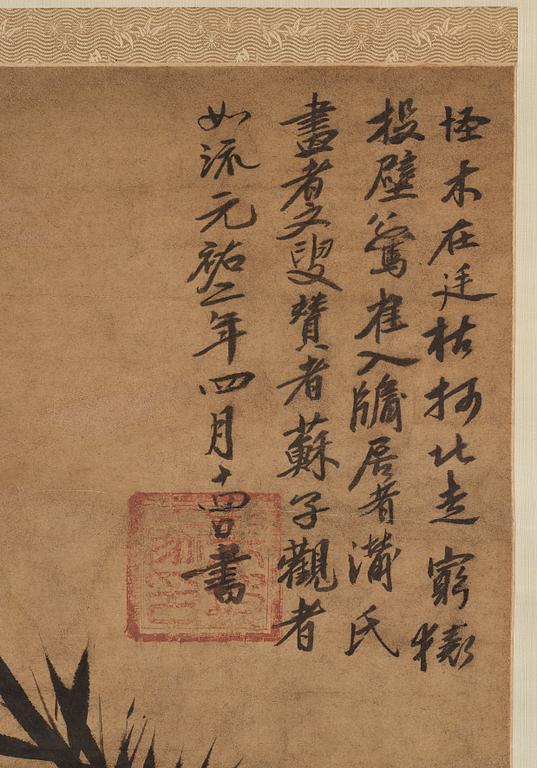 怪木在廷枯柯北走窮猿
投壁驚雀入牖居者蒲氏
畫者文叟贊者蘇子觀者
如流元祐二年四月十四日書